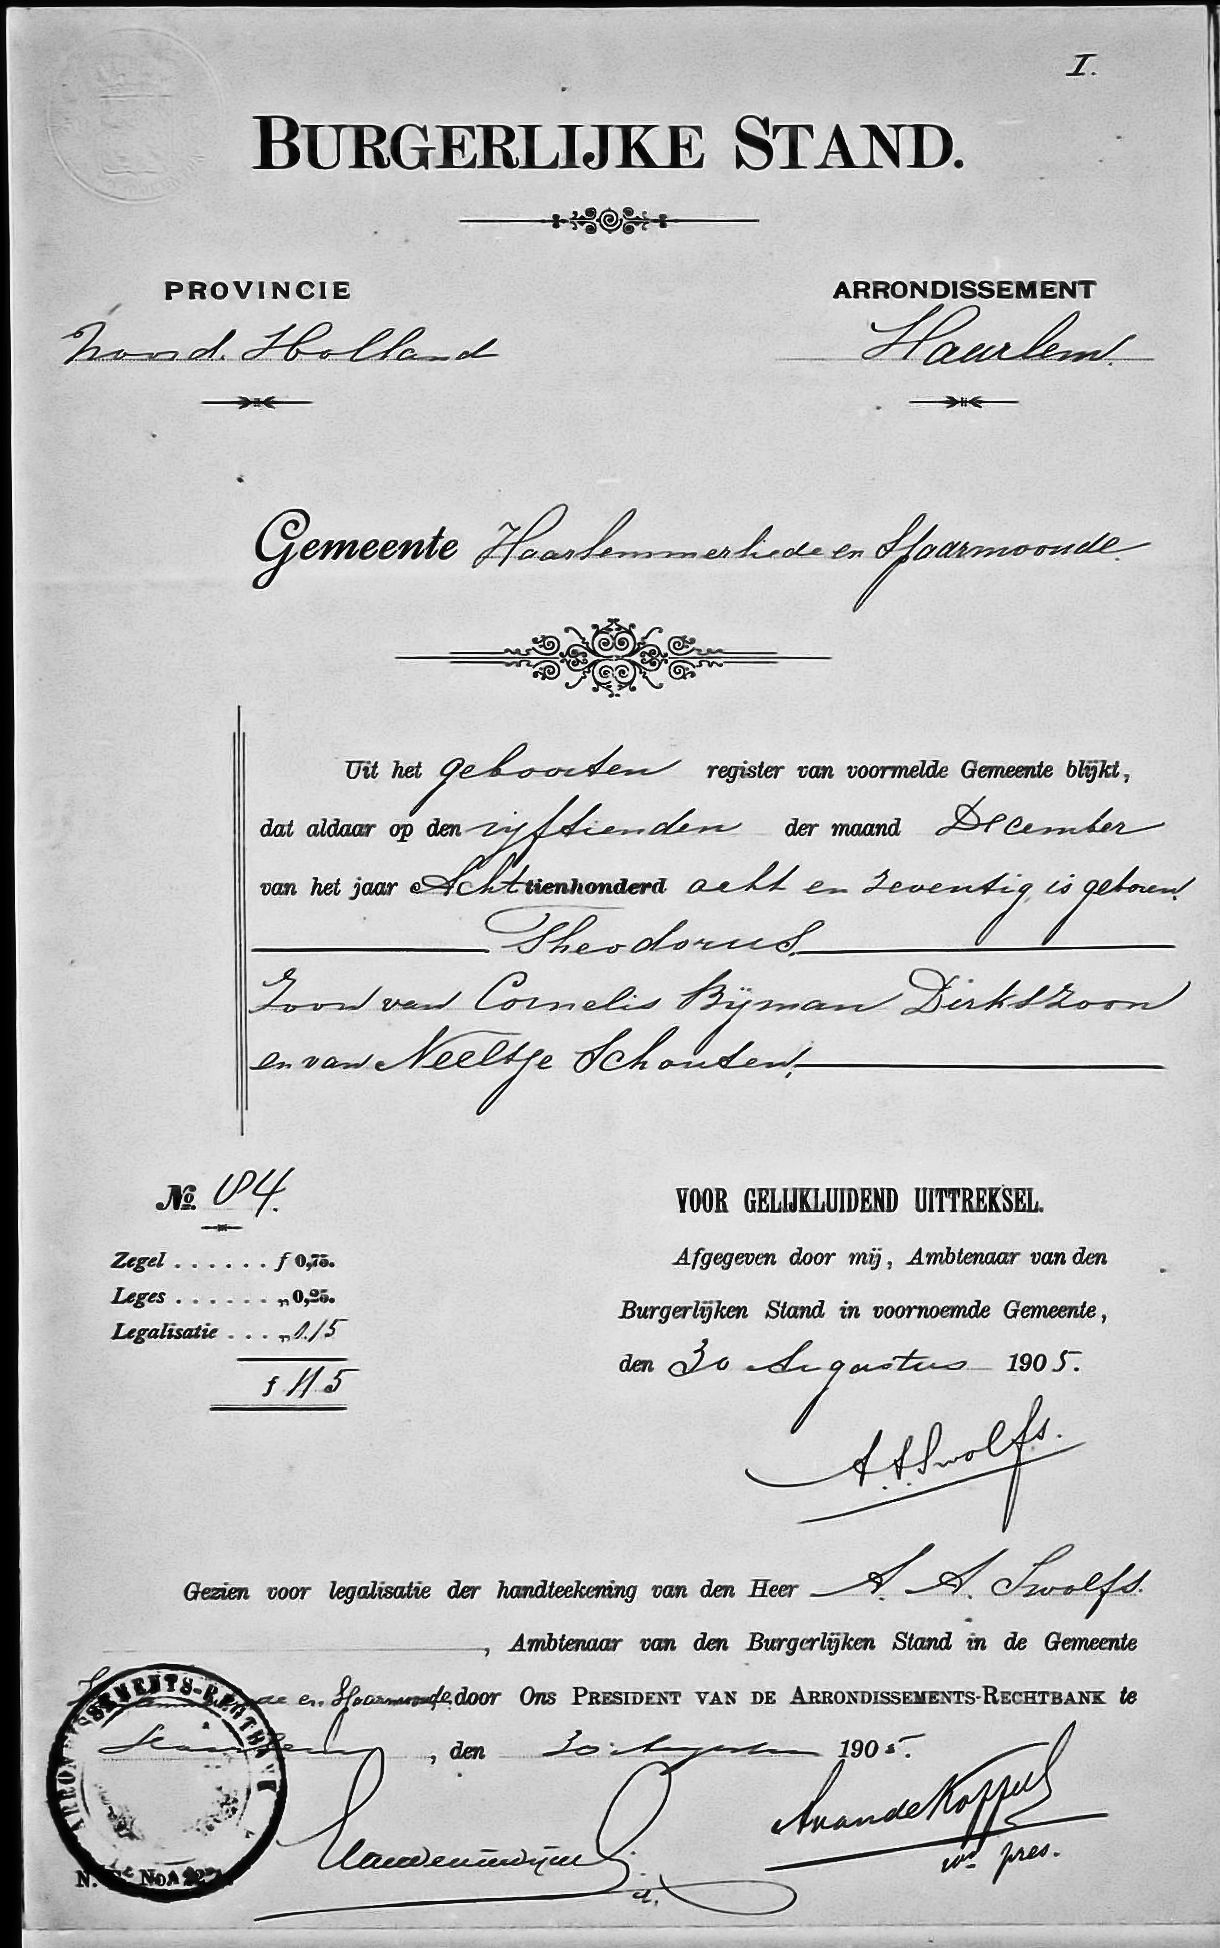 I.
BURGERLIJKE STAND.
PROVINCIE
ARRONDISSEMENT
Noord. Holland
Haarlem.
Gemeente Haarlemmerliede en Spaarnwoude.
Uit het geboorten register van voormelde Gemeente blijkt,
dat aldaar op den vijftienden der maand December
van het jaar Achttienhonderd acht en zeventig is geboren.
Theodorus.
Zoon van Cornelis Bijman Dirkszoon
en van Neeltje Schouten.
No. 84.
Zegel . . . . . . f 0,75.
Leges . . . . . . „ 0,25.
Legalisatie . . . „ 0.15
f 1 15
VOOR GELIJKLUIDEND UITTREKSEL.
Afgegeven door mij, Ambtenaar van den
Burgerlijken Stand in voornoemde Gemeente,
den 30 Augustus 1905.
A. A. Swolfs.
Gezien voor legalisatie der handteekening van den Heer A. A. Swolfs.
, Ambtenaar van den Burgerlijken Stand in de Gemeente
en Spaarnwoude, door Ons PRESIDENT VAN DE ARRONDISSEMENTS-RECHTBANK te
Haarlem, den 30 Augustus 1905.
pres.
ARRONDISSEMENTS-RECHTBANK